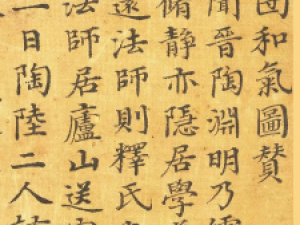 團和氣圖贊
聞晉陶淵明乃儒
脩靜亦隱居學
遠法師則釋氏
法師居廬山送
一日陶陸二人